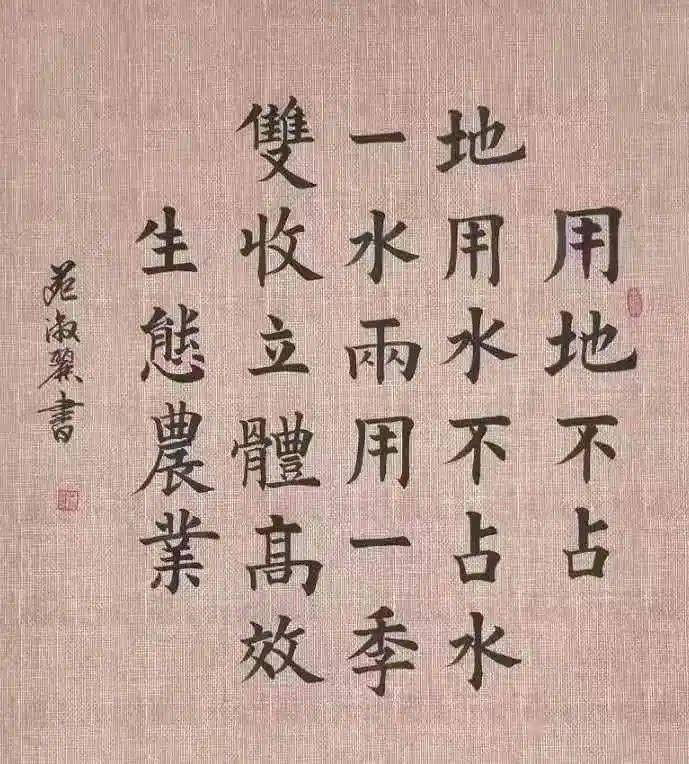 用地不占
地用水不占水
一水兩用一季
雙收立體高效
生態農業
淑翼書